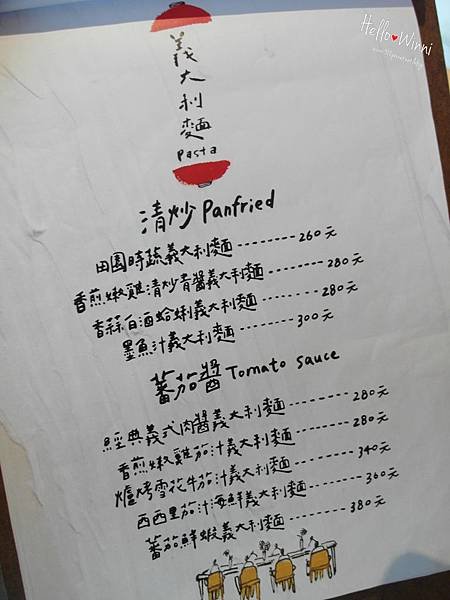 Hello Winni
義大利麵
Pasta
清炒 Panfried
田園時蔬義大利麵 -------- 260元
香煎嫩雞清炒青醬義大利麵 -------- 280元
香蒜白酒蛤蜊義大利麵 -------- 280元
墨魚汁義大利麵 -------- 300元
蕃茄醬 Tomato sauce
經典義式肉醬義大利麵 -------- 280元
香煎嫩雞茄汁義大利麵 -------- 280元
爐烤雪花牛茄汁義大利麵 -------- 340元
西西里茄汁海鮮義大利麵 -------- 360元
蕃茄鮮蝦義大利麵 -------- 380元